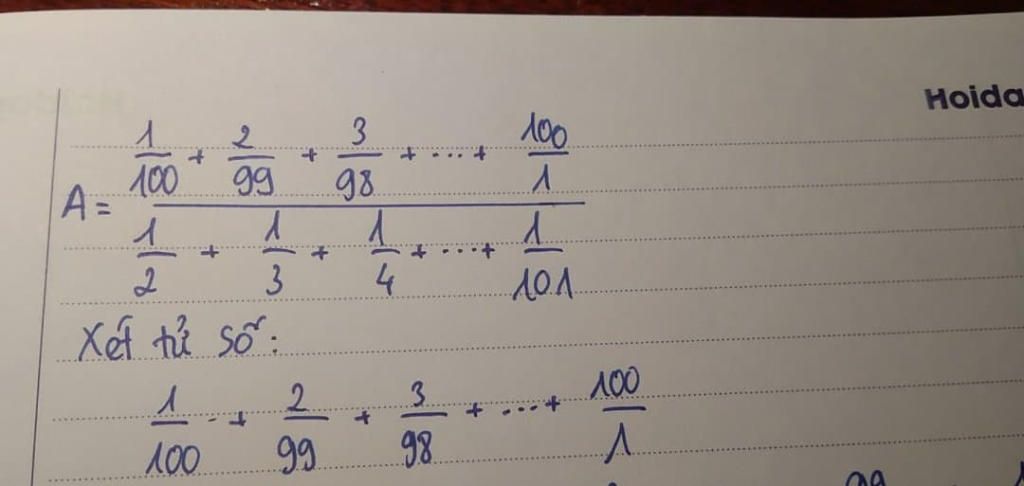 Hoida
A = (1/100 + 2/99 + 3/98 + ... + 100/1) / (1/2 + 1/3 + 1/4 + ... + 1/101)
Xét tử số:
1/100 + 2/99 + 3/98 + ... + 100/1